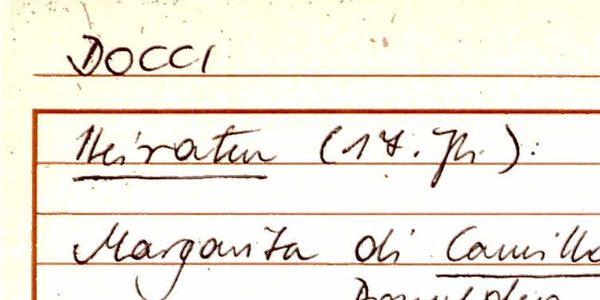 DOCCI
Heiraten (17. Jh.):
Margarita di Camillo